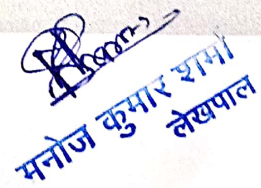 मनोज कुमार शर्मा
लेखपाल